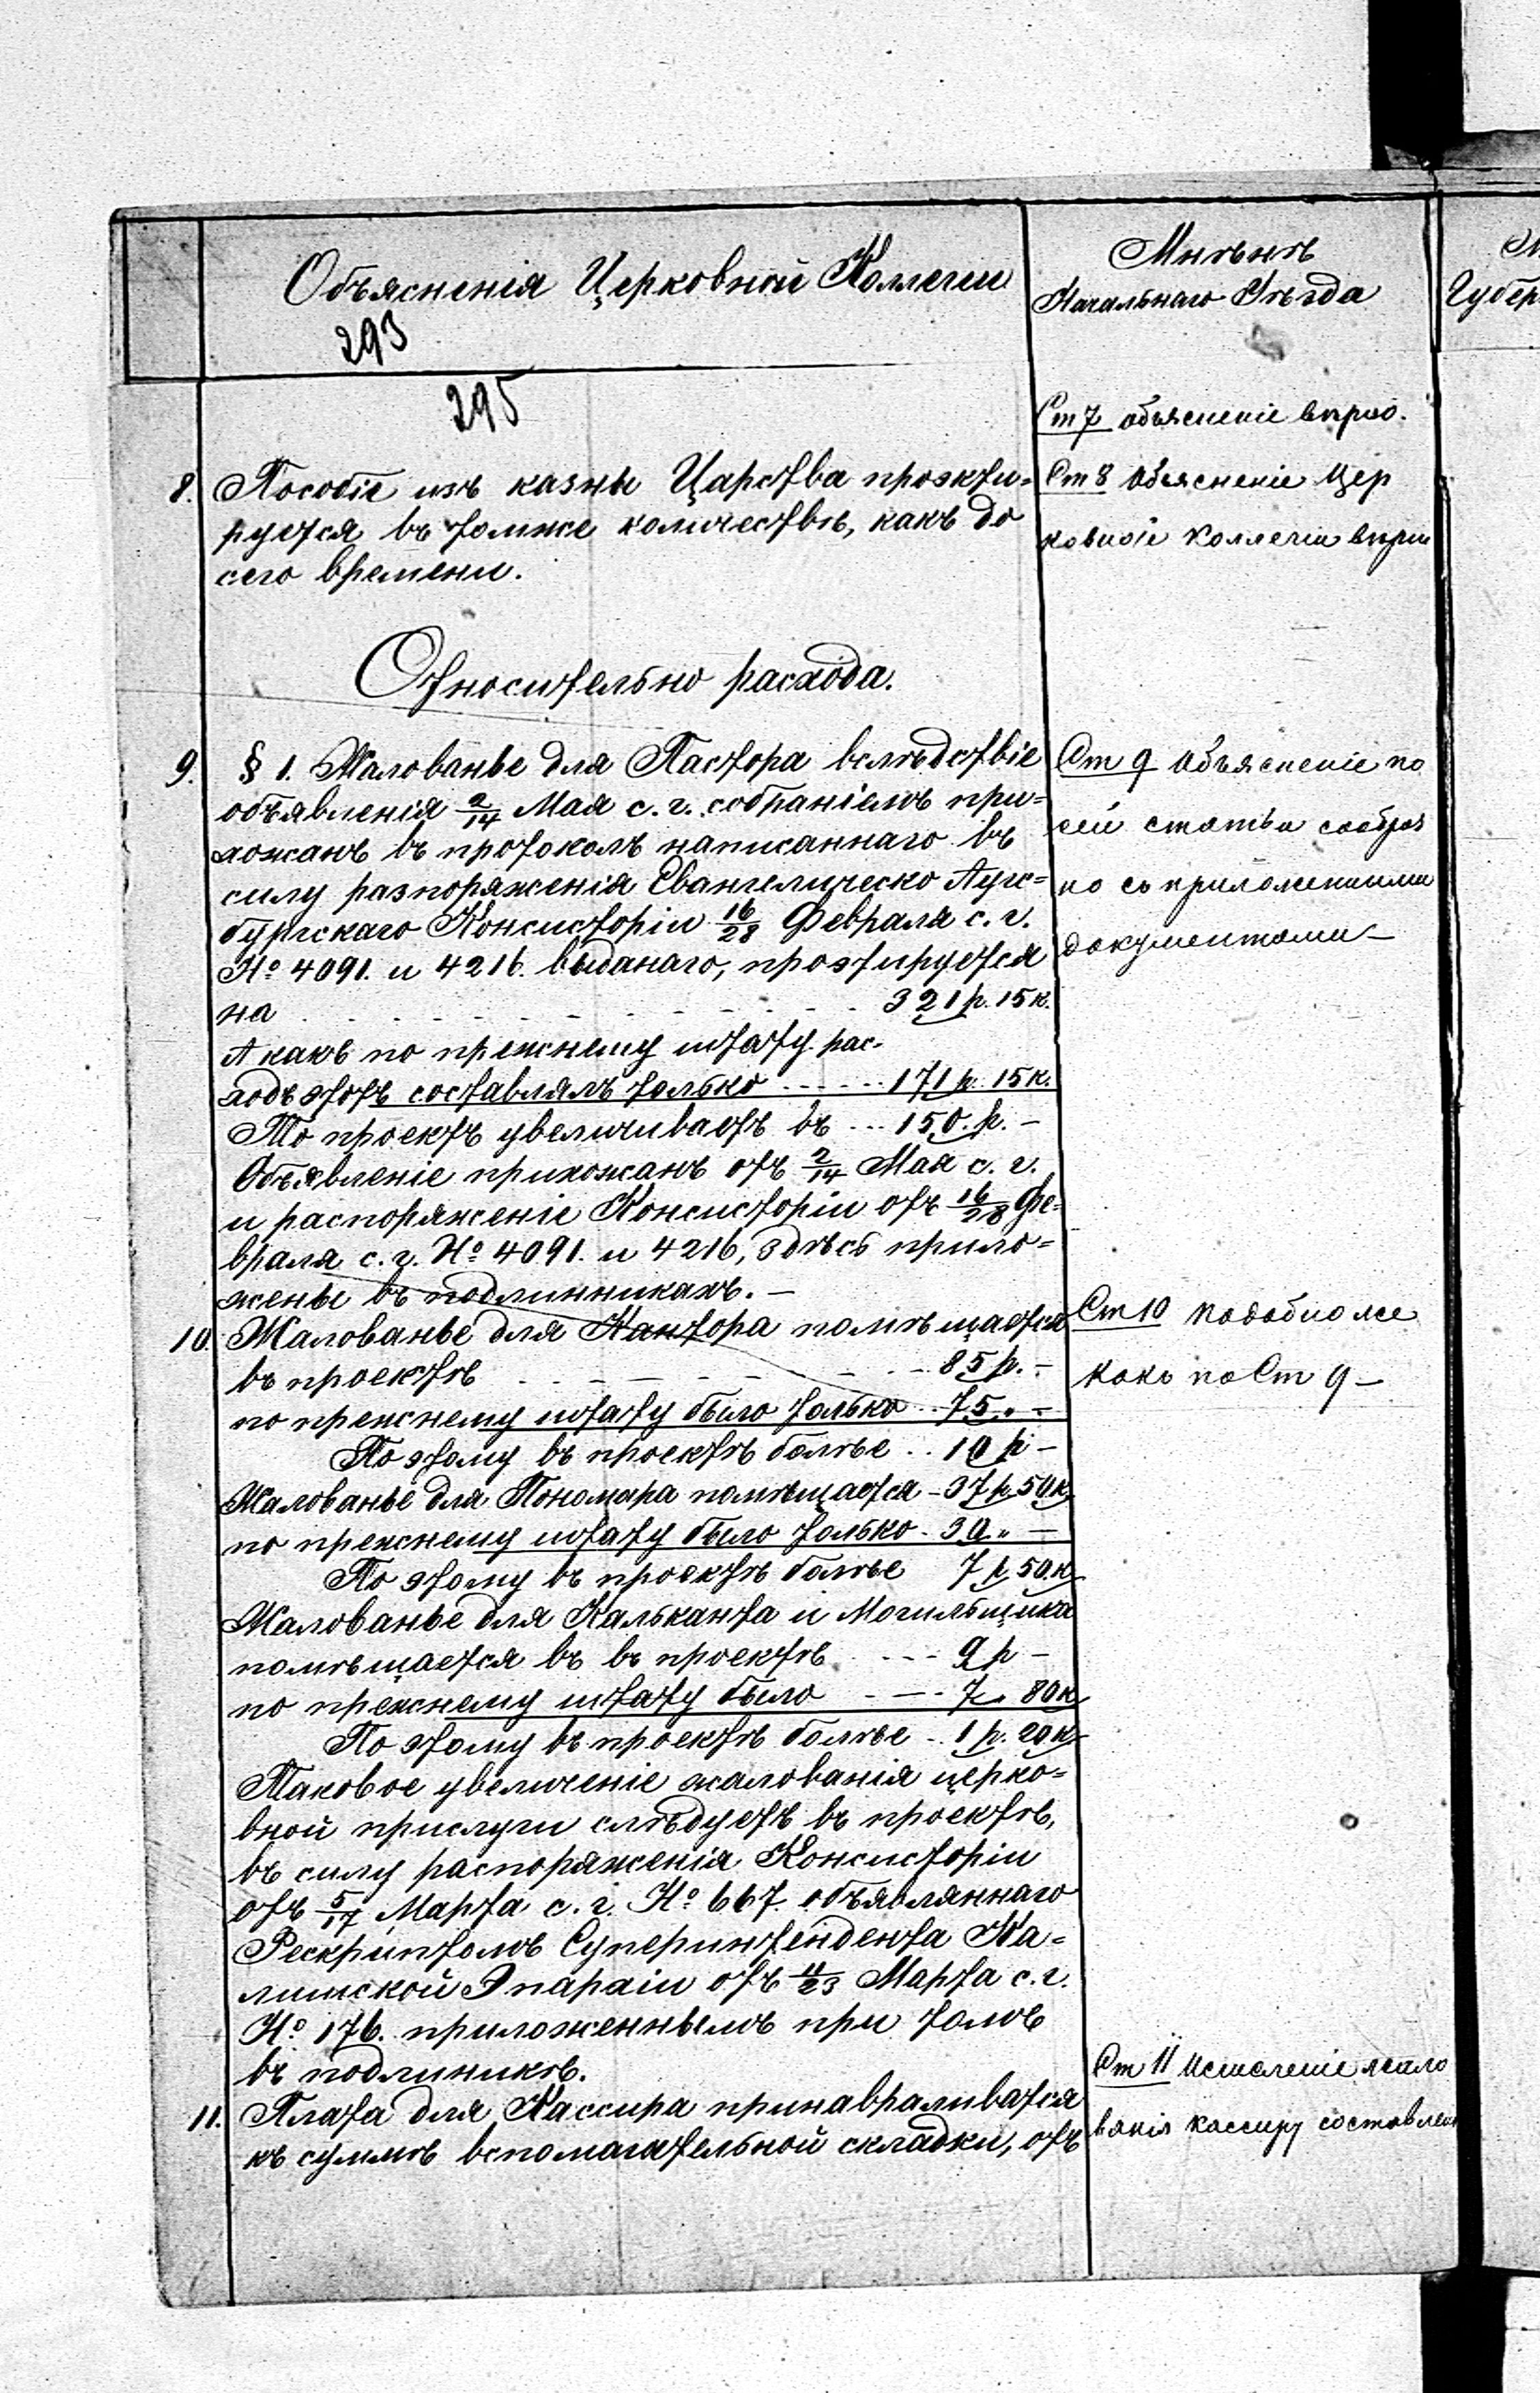 Объясненія Церковной Коллегіи
293
295
8. Пособіе изъ казны Царства проэкти=
руется въ томже количествѣ, какъ до
сего времени.
Относительно расхода.
9. § 1. Жалованье для Пастора вслѣдствіе
объявленія 2/14 Мая с. г. собраніемъ при=
хожанъ въ протоколъ написаннаго въ
силу разпоряженія Евангелическо Аугс=
бургскаго Консисторіи 16/28 Февраля с. г.
№ 4091. и 4216. выданаго, проэтируется
на 321 р. 15 к.
А какъ по прежнему штату рас-
ходъ этотъ составлялъ только 171 р. 15 к.
То проектъ увеличиваетъ въ 150. р. -
Объявленіе прихожанъ отъ 2/14 Мая с. г.
и распоряженіе Консисторіи отъ 16/28 Фе=
враля с. г. № 4091. и 4216, здѣсь прило=
жены въ подлинникахъ. -
10. Жалованье для Кантора помѣщается
въ проектѣ 85 р. -
по прежнему штату было только 75 " -
По этому въ проектѣ болѣе 10 р -
Жалованье для Пономара помѣщается - 37 р 50 к
по прежнему штату было только - 30 " -
По этому въ проектѣ болѣе 7 р 50 к
Жалованье для Кальканта и Могильщика
помѣщается въ въ проектѣ 9 р -
по прежнему штату было 7 " 80 к
По этому въ проектѣ болѣе 1 р. 20 к
Таковое увеличеніе жалованія церко=
вной прислуги слѣдуетъ въ проектѣ,
въ силу распоряженія Консисторіи
отъ 5/17 Марта с. г. № 667. объявляннаго
Рескриптомъ Суперинтендента Ка=
лишской Эпархіи отъ 11/23 Марта с. г.
№ 176. приложеннымъ при томъ
въ подлиникѣ.
11. Плата для Кассира
къ суммѣ вспомагательной складки, отъ
Мнѣнѣ
Начальнаго Уѣзда
Ст 7 объясненіе вѣрно.
Ст 8 Объясненіе Цер
ковноіе Коллегіи вѣрн
Ст 9 Объясненіе по
сеи статьи сообраз
но съ приложенными
документами -
Ст 10 подобно же
какъ по Ст 9 -
Ст 11 Исчисленіе жало
ванія кассиру составлен
Губер